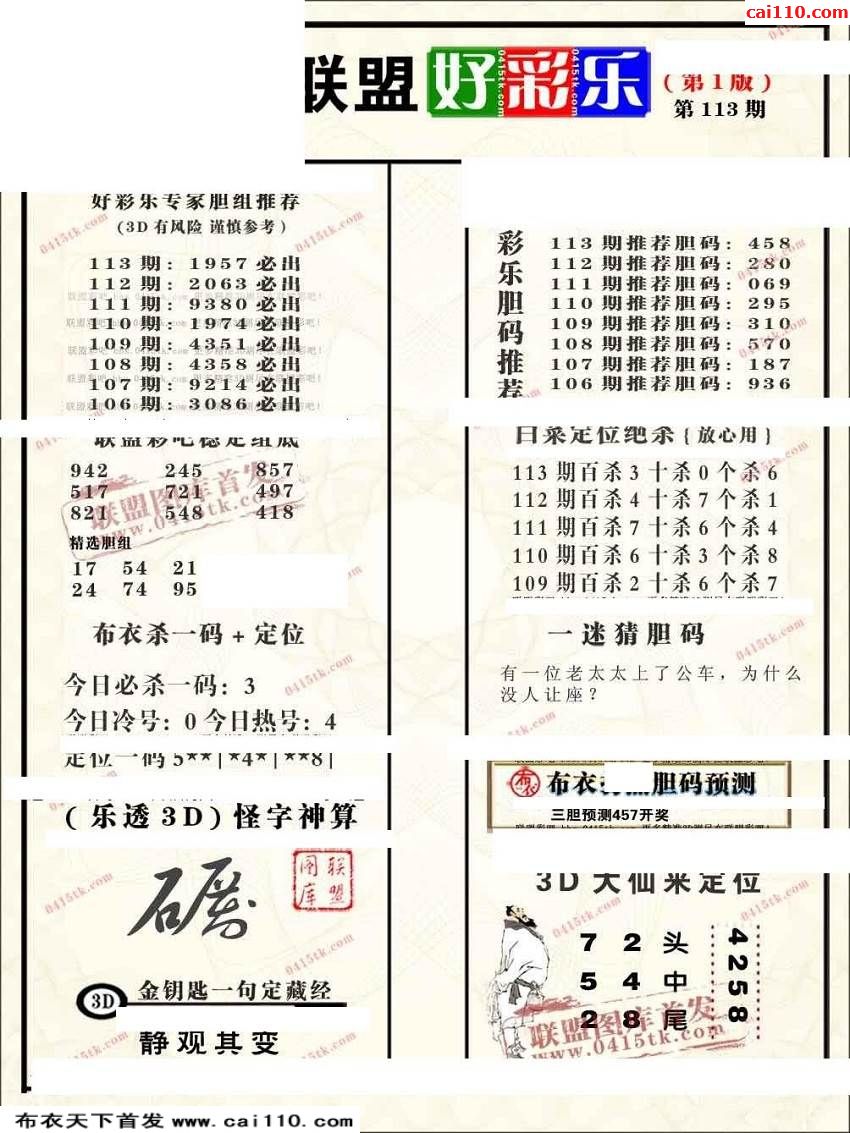 cai110.com
联盟 好彩乐
0415tk.com 0415tk.com 0415tk.com
(第1版)
第113期
好彩乐专家胆组推荐
(3D有风险 谨慎参考)
113期:1957必出
112期:2063必出
111期:9380必出
110期:1974必出
109期:4351必出
108期:4358必出
107期:9214必出
106期:3086必出
联盟彩吧稳定组底
942 245 857
517 721 497
821 548 418
精选胆组
17 54 21
24 74 95
布衣杀一码+定位
今日必杀一码:3
今日冷号:0 今日热号:4
定位一码 5**|*4*|**8|
(乐透3D)怪字神算
联盟图库
3D 金钥匙一句定藏经
静观其变
彩乐胆码推荐
113期推荐胆码:458
112期推荐胆码:280
111期推荐胆码:069
110期推荐胆码:295
109期推荐胆码:310
108期推荐胆码:570
107期推荐胆码:187
106期推荐胆码:936
白菜定位绝杀{放心用}
113期百杀3十杀0个杀6
112期百杀4十杀7个杀1
111期百杀7十杀6个杀4
110期百杀6十杀3个杀8
109期百杀2十杀6个杀7
一迷猜胆码
有一位老太太上了公车,为什么
没人让座?
布衣 布衣 胆码预测
三胆预测457开奖
3D大仙来定位
7 2 头
5 4 中
2 8 尾
4258
联盟图库首发
www.0415tk.com
联盟图库首发
www.0415tk.com
布衣天下首发 www.cai110.com